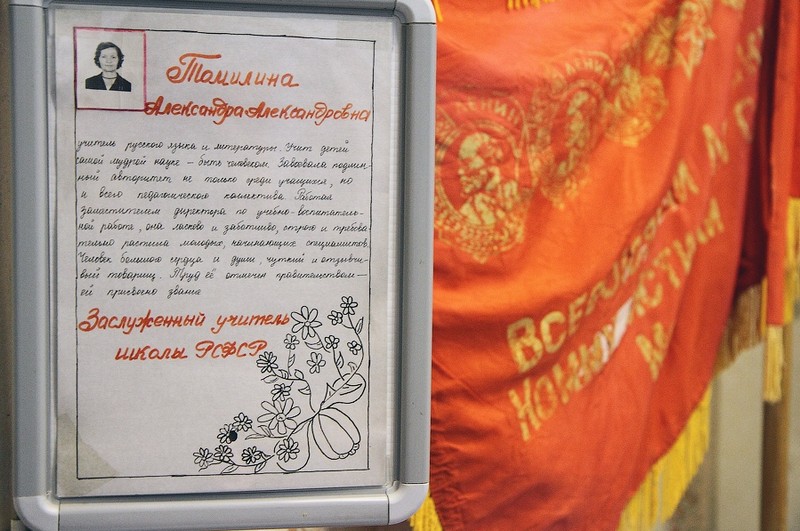 Томилина
Александра Александровна
учитель русского языка и литературы. Учит детей
самой мудрой науке – быть человеком. Завоевала подлин-
ный авторитет не только среди учащихся, но
и всего педагогического коллектива. Работая
заместителем директора по учебно-воспитатель-
ной работе, она ласково и заботливо, строго и требова-
тельно растила молодых, начинающих специалистов.
Человек большого сердца и души, чуткий и отзывчи-
вый товарищ. Труд её отмечен правительством —
ей присвоено звание
Заслуженный учитель
школы РСФСР
ЛЕНИН
ВСЕСОЮЗНЫЙ